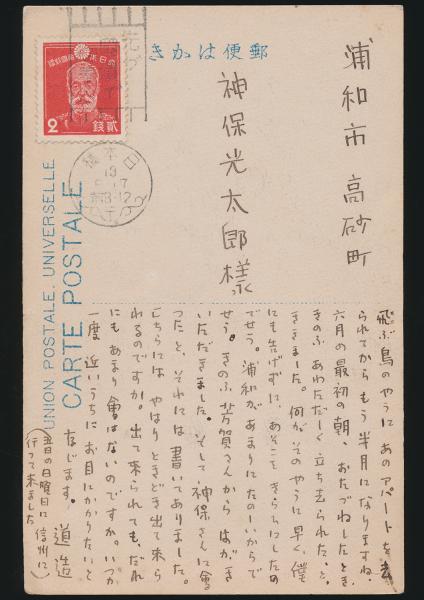 郵便はかき
浦和市高砂町
神保光太郎様
飛ぶ鳥のやうにあのアパートを去
られてからもう半月になりますね。
六月の最初の朝、おたづねしたとき
きのふあわただしく立ち去られた、と
きききました。何がそのやうに早く、僕
にも告げずに、あそこをきらひにしたの
でせう。浦和があまりにたのしいからで
せう。きのふ芳賀さんからはがき
いただきました。そして神保さんに會
つたと、それには書いてありました。
こちらにはやはりときどき出て来ら
れるのですか。出て来られても、だれ
にもあまり會はないのですか。いつか
一度近いうちにお目にかかりたいと
ぞんじます。道造
(五日の日曜日に信州に
行つて来ました)
UNION POSTALE UNIVERSELLE
CARTE POSTALE
大日本帝國郵便
2
貳錢
日本橋
13